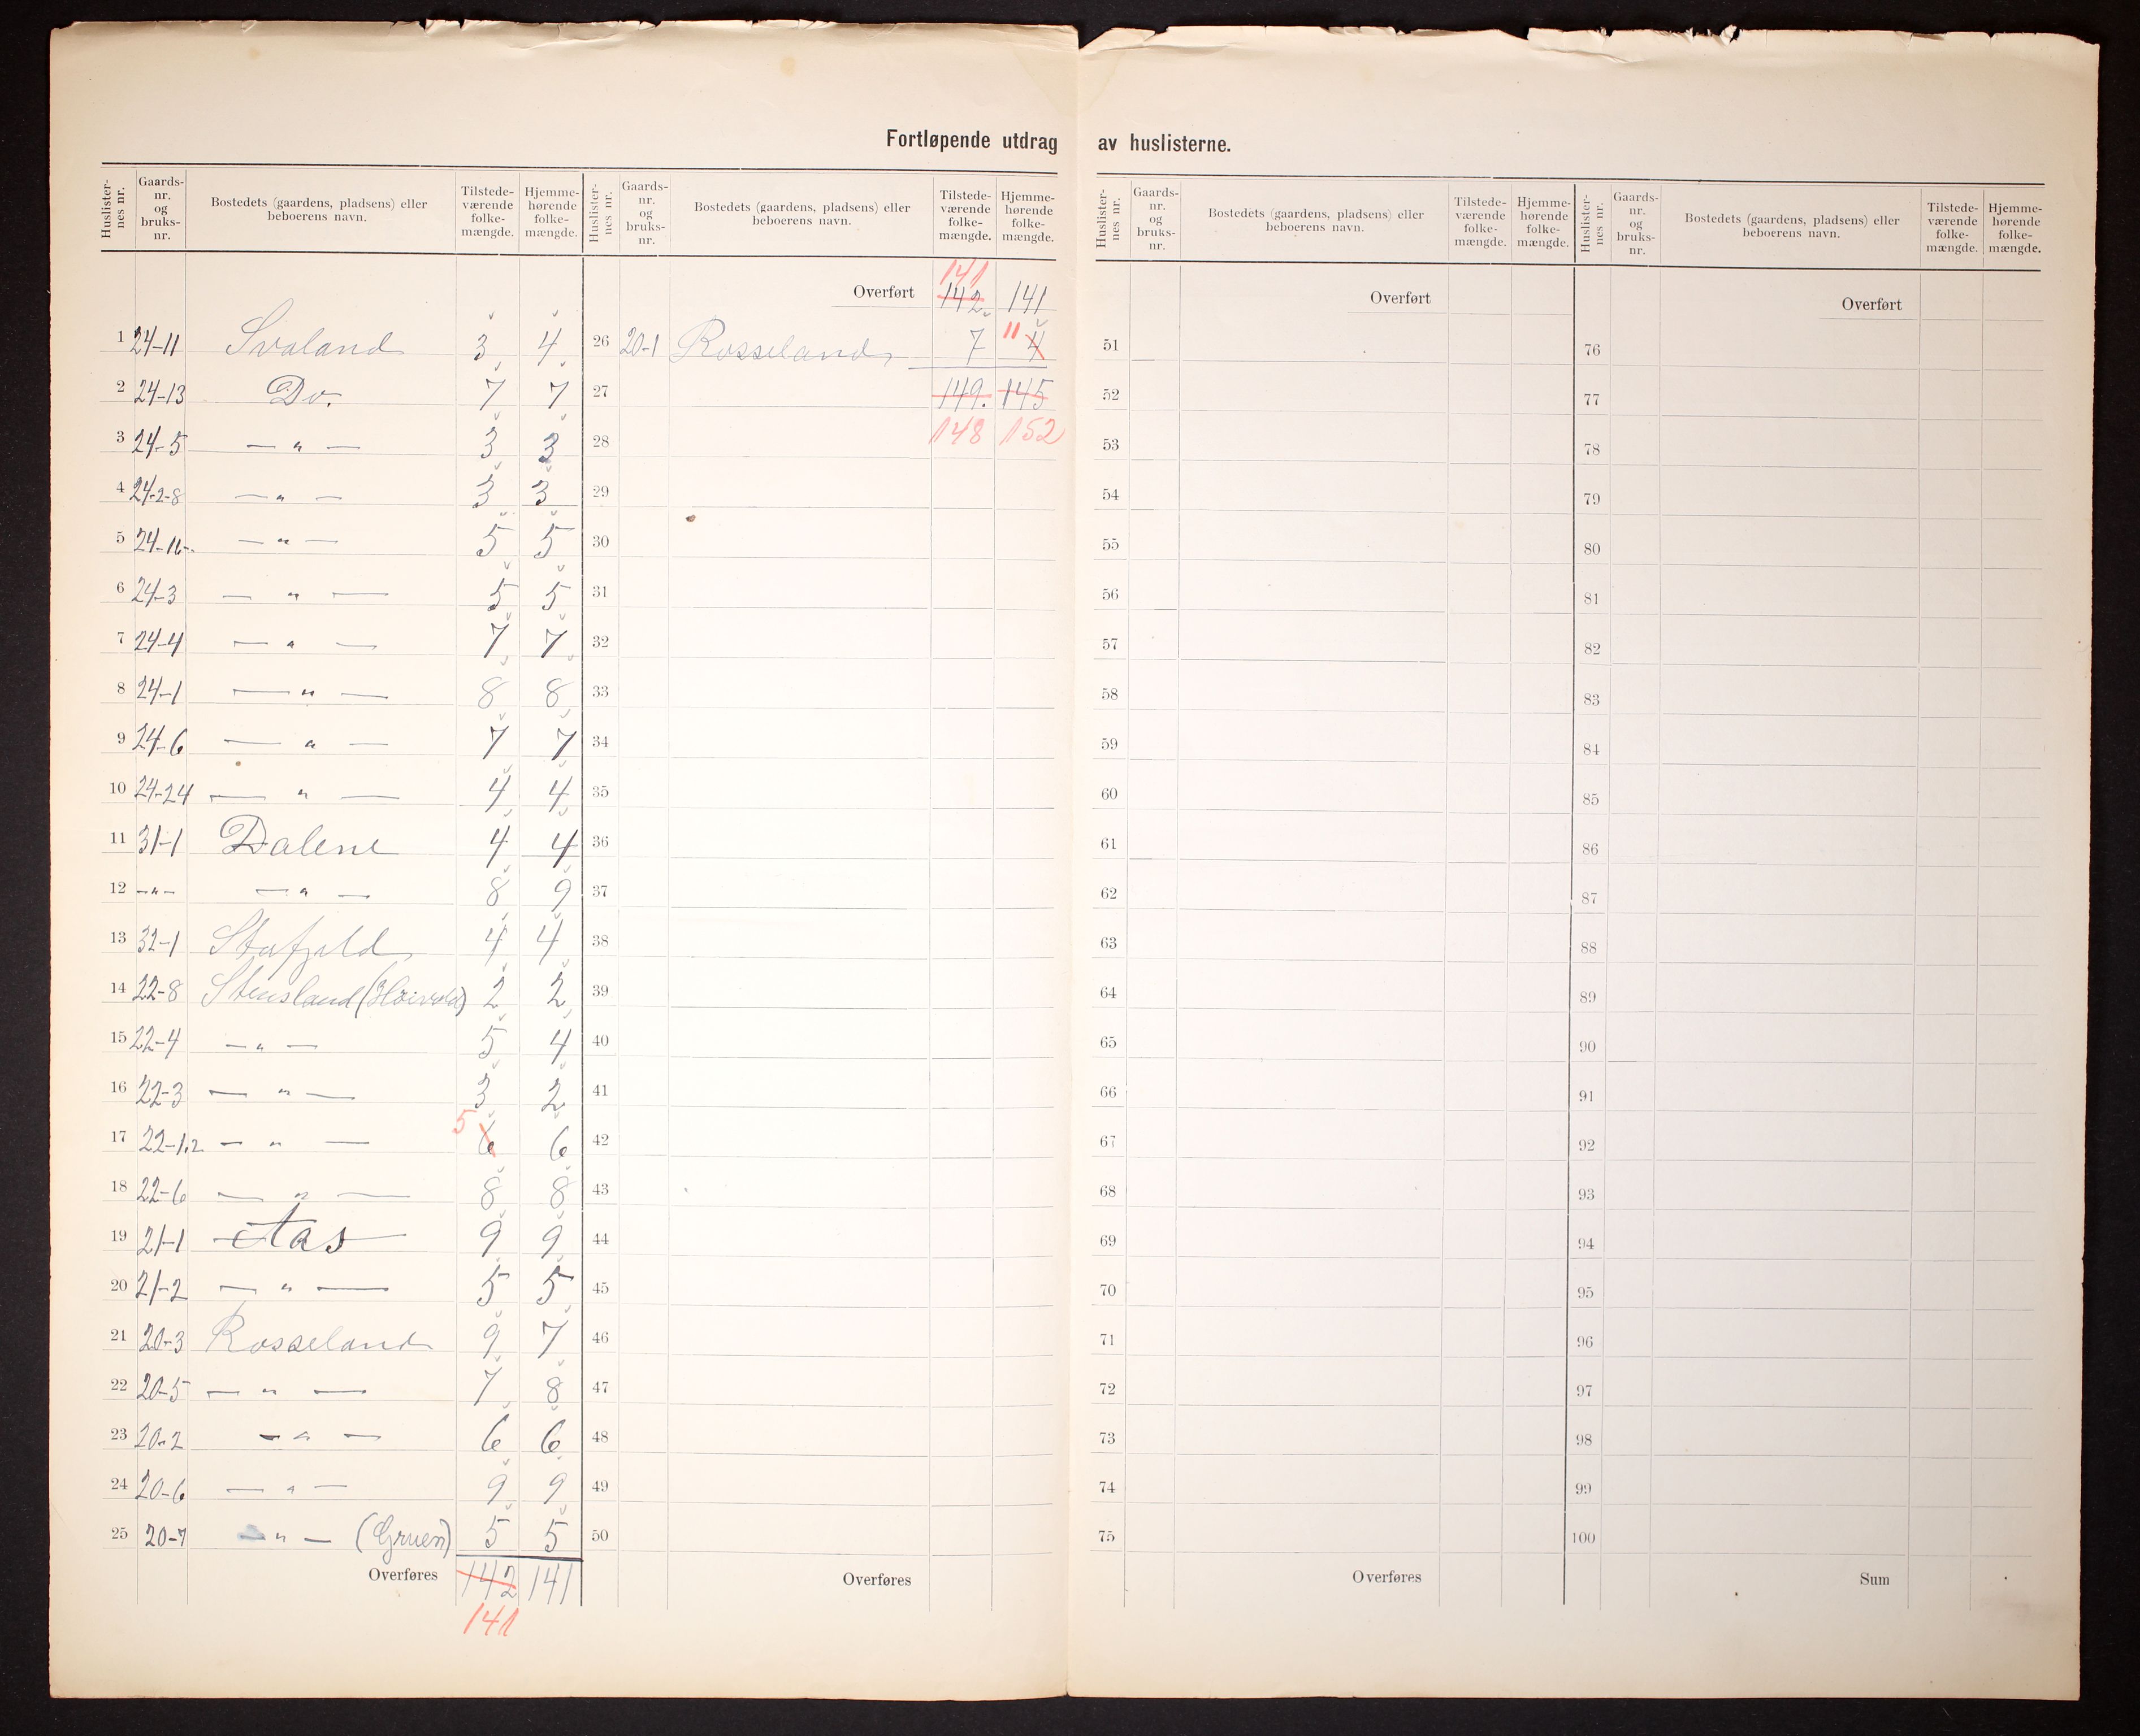 Fortløpende utdrag av huslisterne.
Huslisternes nr. Gaards-nr. og bruks-nr. Bostedets (gaardens, pladsens) eller beboerens navn. Tilstede-værende folke-mængde. Hjemme-hørende folke-mængde. Huslisternes nr. Gaards-nr. og bruks-nr. Bostedets (gaardens, pladsens) eller beboerens navn. Tilstede-værende folke-mængde. Hjemme-hørende folke-mængde. Huslisternes nr. Gaards-nr. og bruks-nr. Bostedets (gaardens, pladsens) eller beboerens navn. Tilstede-værende folke-mængde. Hjemme-hørende folke-mængde. Huslisternes nr. Gaards-nr. og bruks-nr. Bostedets (gaardens, pladsens) eller beboerens navn. Tilstede-værende folke-mængde. Hjemme-hørende folke-mængde.
141
Overført 142 141 Overført Overført
1 24-11 Svaland 3 4 26 20-1 Rosseland 7 11 4 51 76
2 24-13 Do. 7 7 27 149. 145 52 77
3 24-5 — " — 3 3 28 148 152 53 78
4 24-2-8 — " — 3 3 29 54 79
5 24-16- — " — 5 5 30 55 80
6 24-3 — " — 5 5 31 56 81
7 24-4 — " — 7 7 32 57 82
8 24-1 — " — 8 8 33 58 83
9 24-6 — " — 7 7 34 59 84
10 24-24 — " — 4 4 35 60 85
11 31-1 Dalene 4 4 36 61 86
12 -"- — " — 8 9 37 62 87
13 32-1 4 4 38 63 88
14 22-8 Stensland 2 2 39 64 89
15 22-4 — " — 5 4 40 65 90
16 22-3 — " — 3 2 41 66 91
17 22-1,2 — " — 5 6 6 42 67 92
18 22-6 — " — 8 8 43 68 93
19 21-1 Aas 9 9 44 69 94
20 21-2 — " — 5 5 45 70 95
21 20-3 Rosseland 9 7 46 71 96
22 20-5 — " — 7 8 47 72 97
23 20-2 — " — 6 6 48 73 98
24 20-6 — " — 9 9 49 74 99
25 20-7 — " — (Gruen) 5 5 50 75 100
Overføres 142 141 Overføres Overføres Sum
141